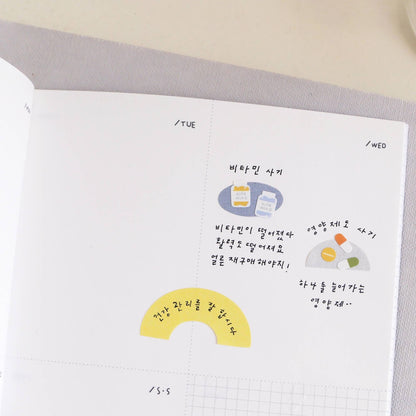 /TUE
/WED
비타민 사기
비타민이 떨어졌다
활력도 떨어져요
얼른 재구매해야지!
영양제도 사기
하나 둘 늘어가는
영양제..
건강 관리를 잘 합시다
/S·S